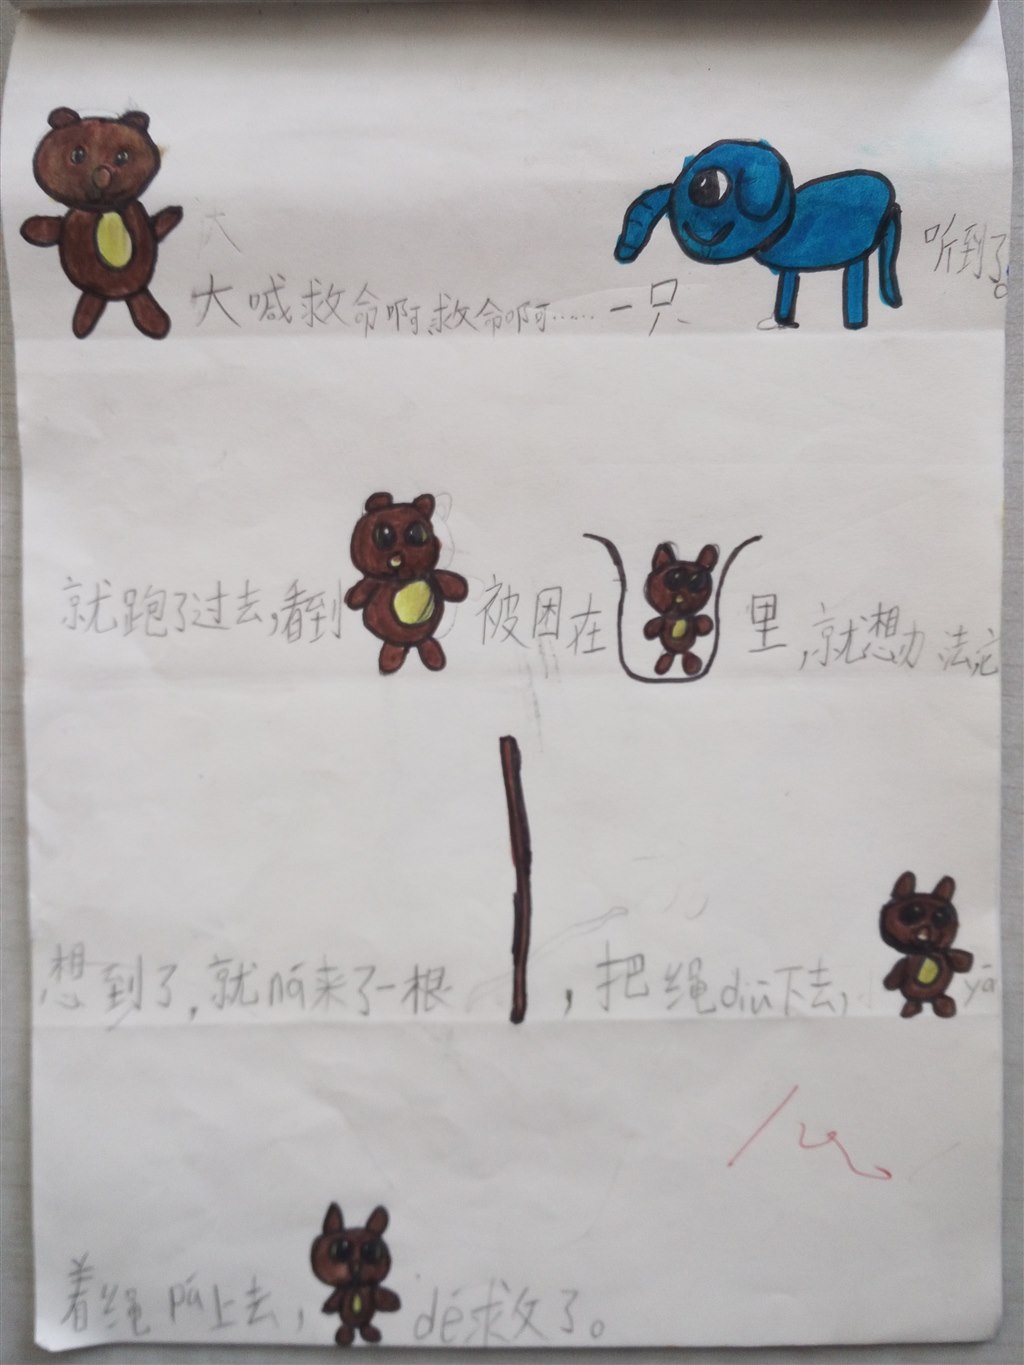 大喊救命啊,救命啊……一只 听到了。
就跑了过去,看到 被困在 里,就想办法,它
想到了,就ná来了一根 ,把绳diū下去, yá
着绳pá上去, dé救了。